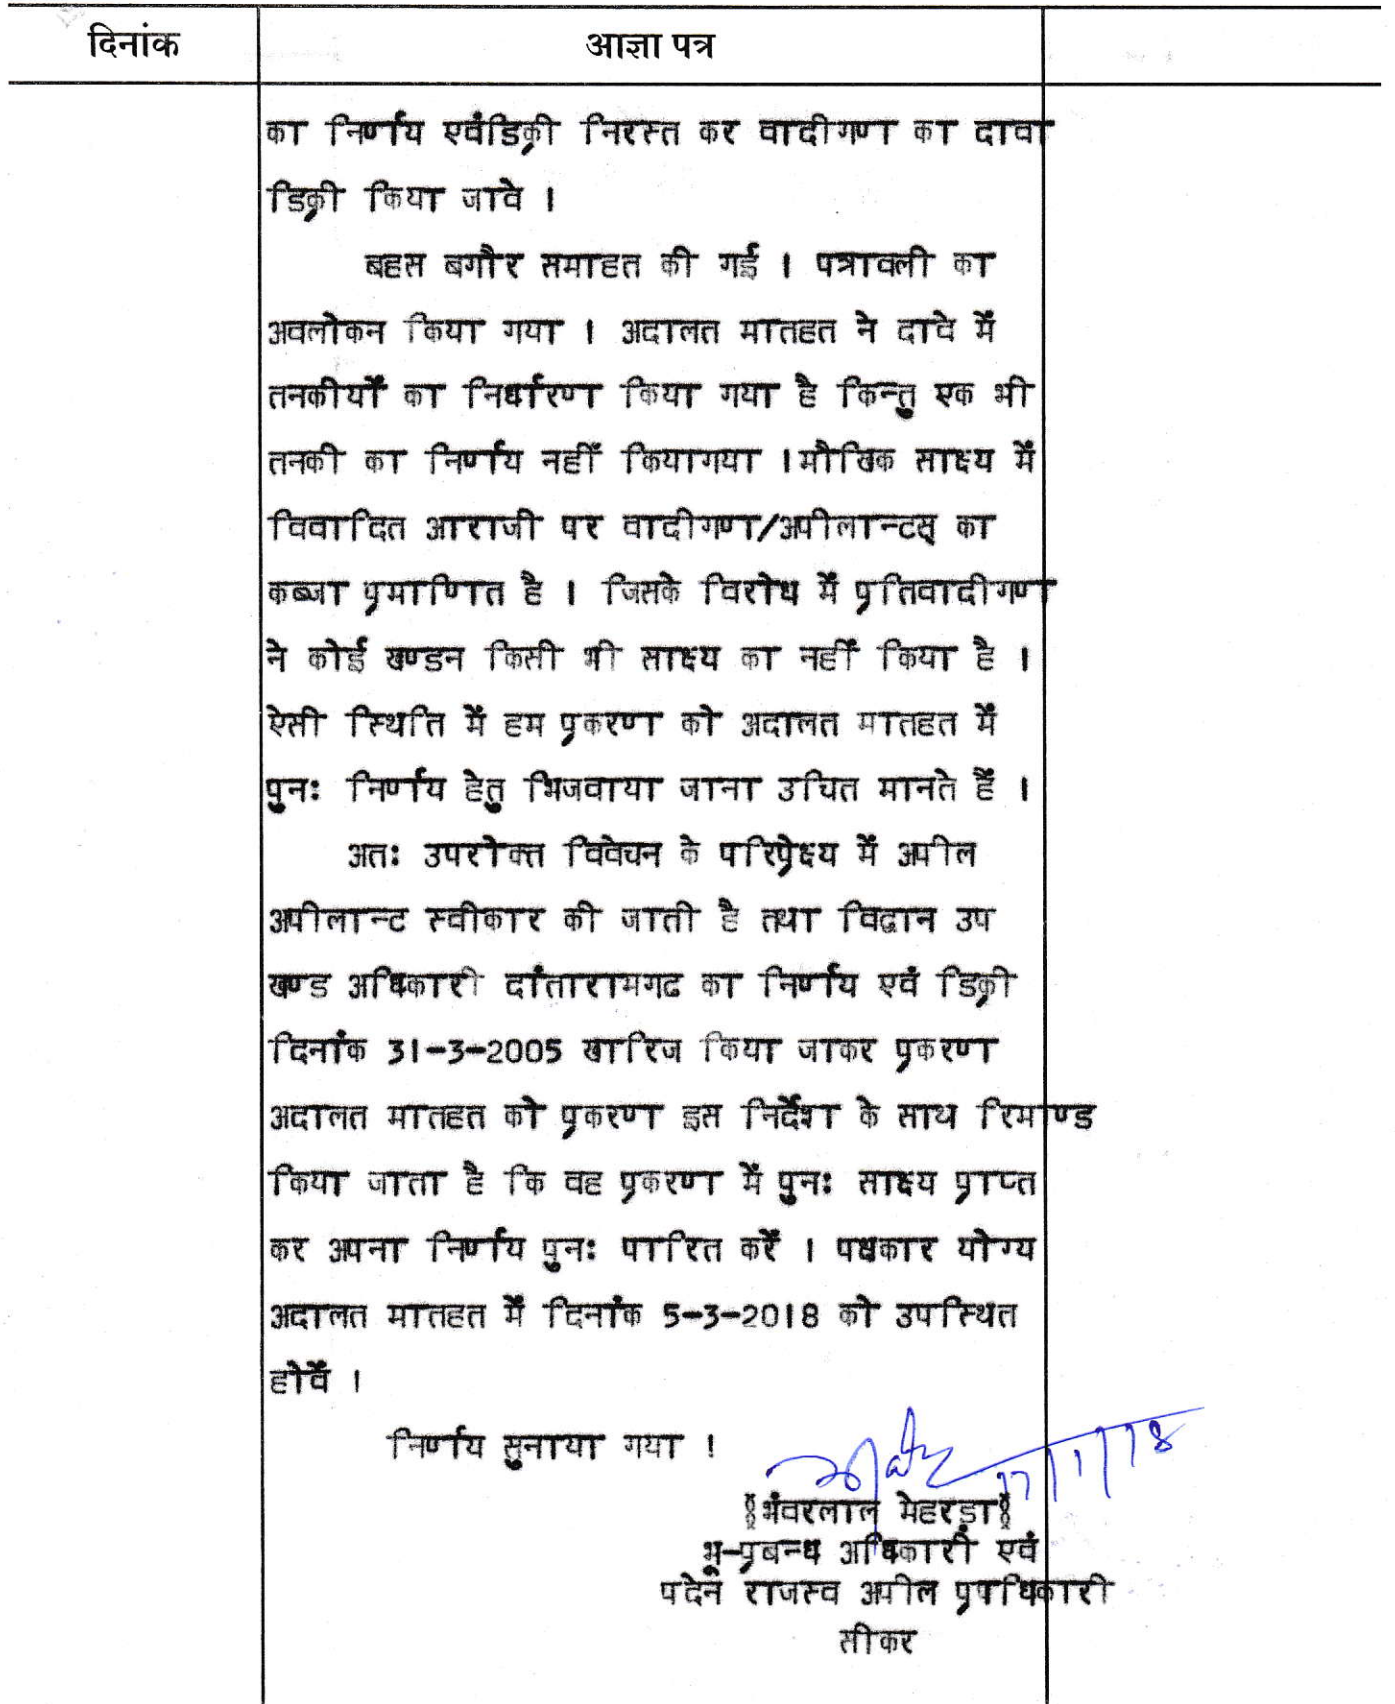 दिनांक आज्ञा पत्र
का निर्णय एवंडिक्री निरस्त कर वादीगण का दावा
डिक्री किया जावे ।
बहस बगौर समाहत की गई । पत्रावली का
अवलोकन किया गया । अदालत मातहत ने दावे में
तनकीयों का निर्धारण किया गया है किन्तु एक भी
तनकी का निर्णय नहीं कियागया ।मौखिक साक्ष्य में
विवादित आराजी पर वादीगण/अपीलान्टस् का
कब्जा प्रमाणित है । जिसके विरोध में प्रतिवादीगण
ने कोई खण्डन किसी भी साक्ष्य का नहीं किया है ।
ऐसी स्थिति में हम प्रकरण को अदालत मातहत में
पुनः निर्णय हेतु भिजवाया जाना उचित मानते हैं ।
अतः उपरोक्त विवेचन के परिप्रेक्ष्य में अपील
अपीलान्ट स्वीकार की जाती है तथा विद्वान उप
खण्ड अधिकारी दांतारामगढ का निर्णय एवं डिक्री
दिनांक 31-3-2005 खारिज किया जाकर प्रकरण
अदालत मातहत को प्रकरण इस निर्देश के साथ रिमाण्ड
किया जाता है कि वह प्रकरण में पुनः साक्ष्य प्राप्त
कर अपना निर्णय पुनः पारित करें । पक्षकार योग्य
अदालत मातहत में दिनांक 5-3-2018 को उपस्थित
होवें ।
निर्णय सुनाया गया !
17/1/18
भंवरलाल मेहरडा
भू-प्रबन्ध अधिकारी एवं
पदेन राजस्व अपील प्रपधिकारी
सीकर